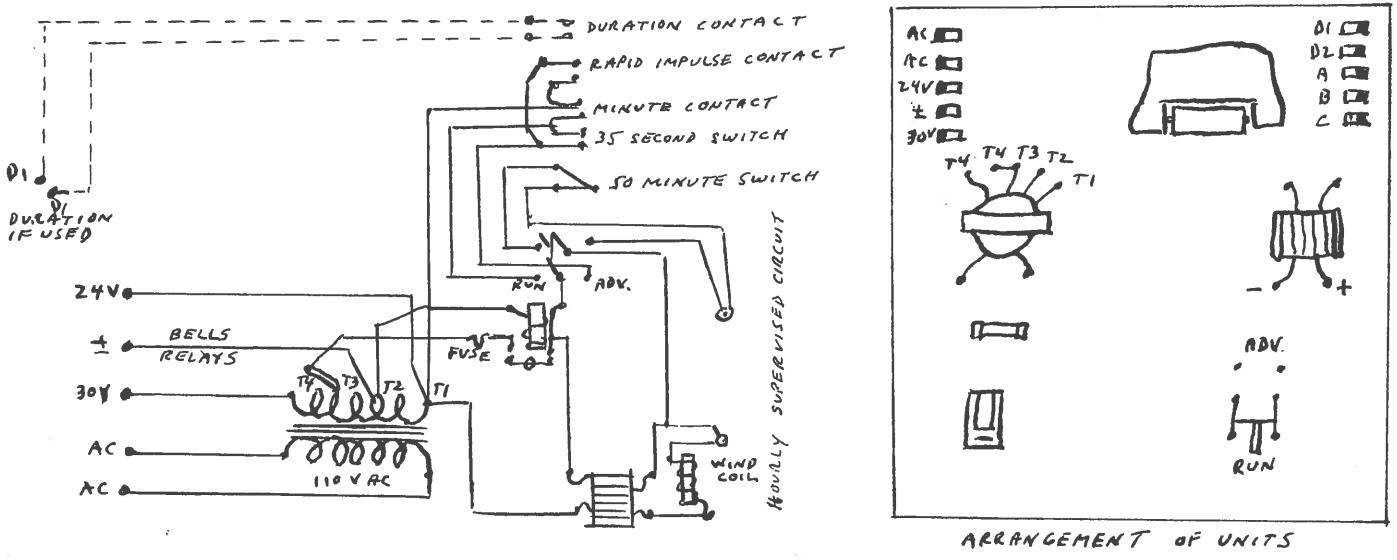 DURATION CONTACT
RAPID IMPULSE CONTACT
MINUTE CONTACT
35 SECOND SWITCH
50 MINUTE SWITCH
D1
D1
DURATION
IF USED
RUN
ADV.
24V
±
BELLS
RELAYS
FUSE
30V
T4
T3
T2
T1
AC
110 VAC
AC
WIND
COIL
HOURLY SUPERVISED CIRCUIT
AC
AC
24V
±
30V
D1
D2
A
B
C
T4
T4
T3
T2
T1
- +
ADV.
RUN
ARRANGEMENT OF UNITS